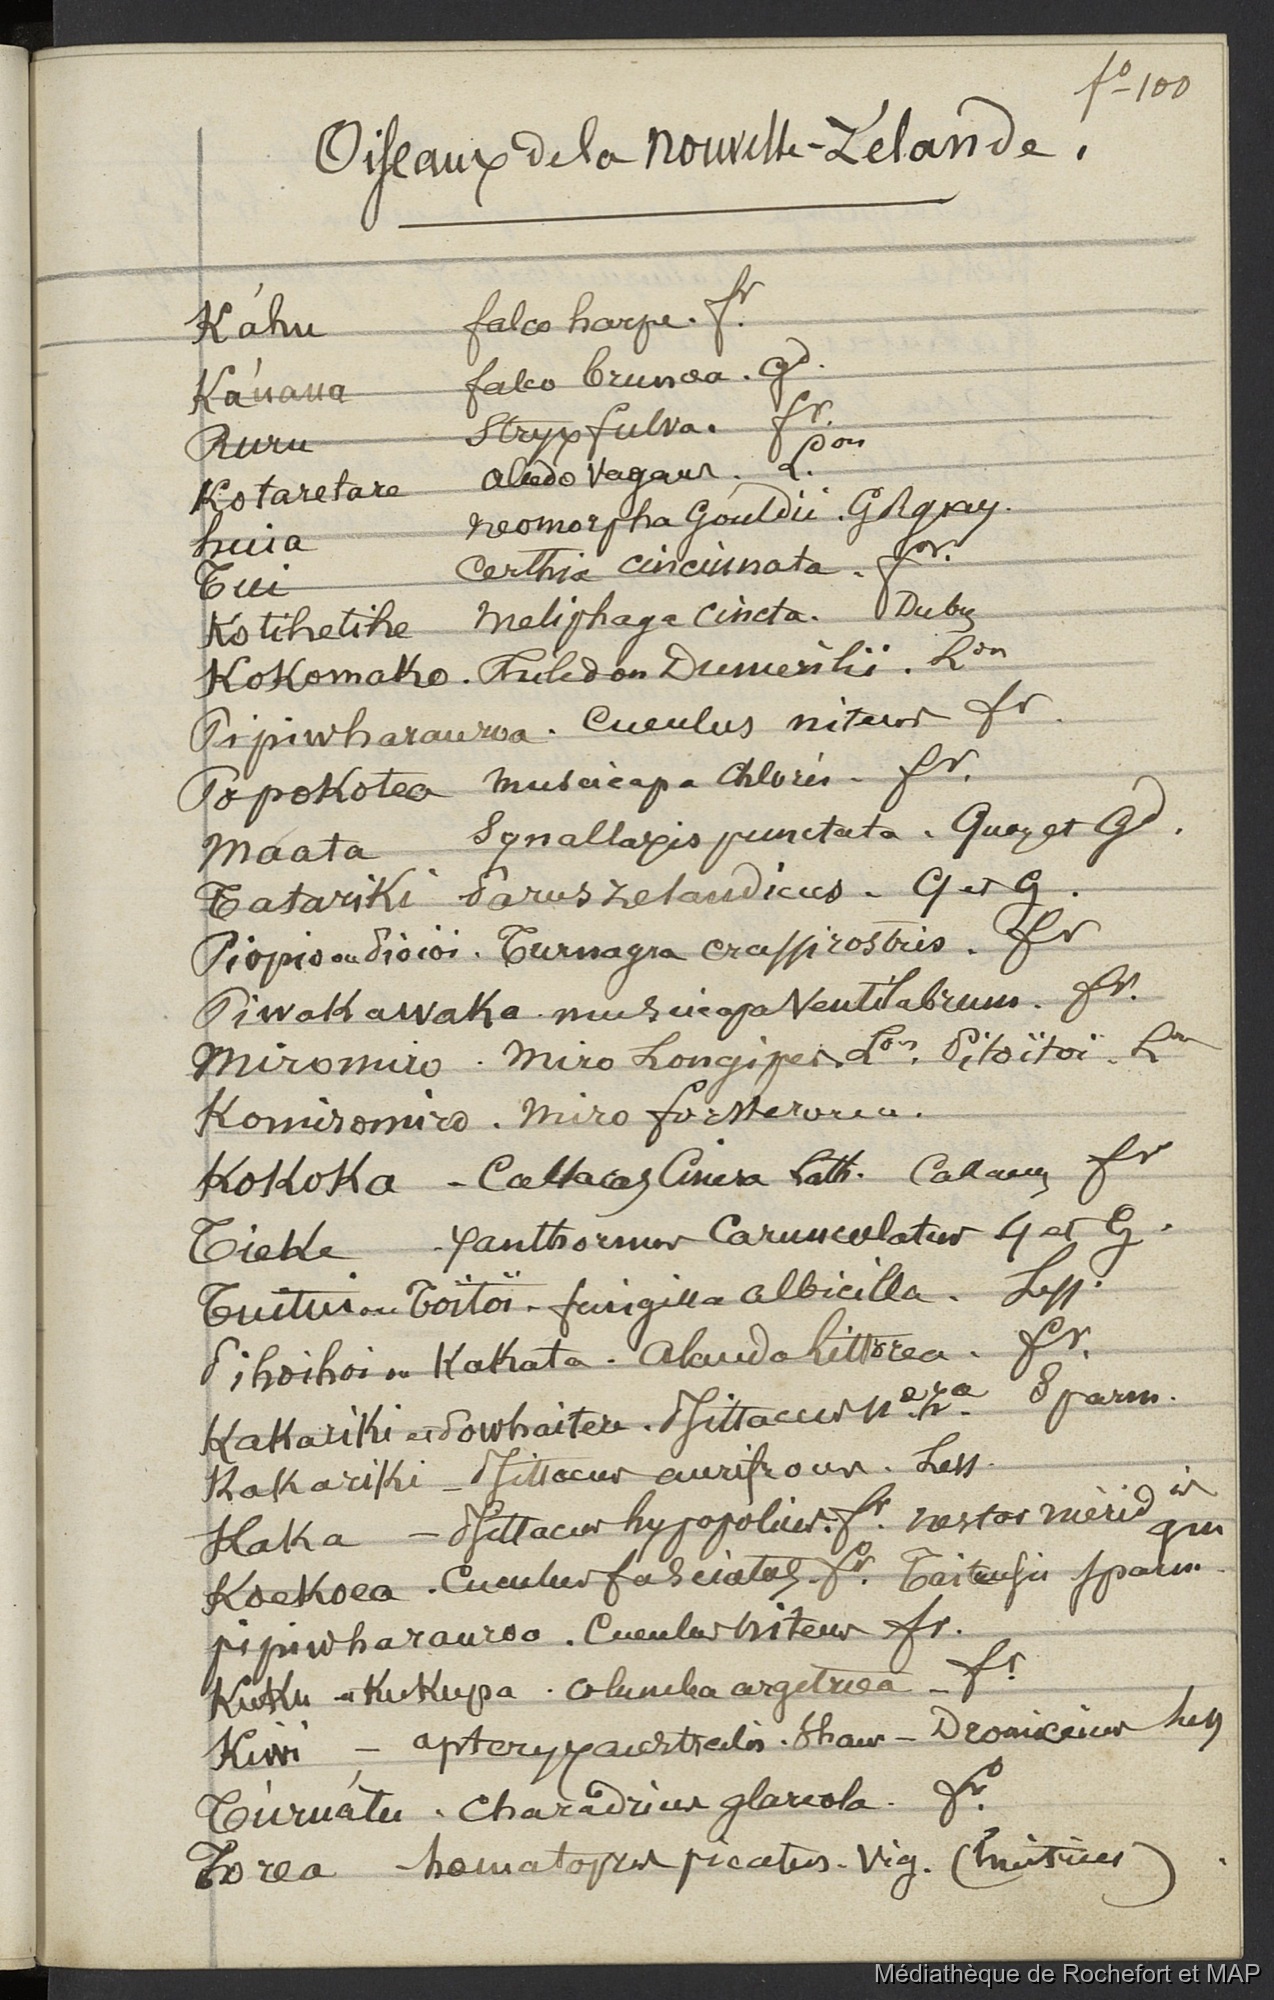 fo-100
Oiseaux de la nouvelle-Zélande.
Káhu falco harpe. fr.
Ka'uaua falco brunea. Gd.
Ruru Stryx fulva. fr.
Kotaretare alcedo Vagans. L.on
huia neomorpha Gouldii. G R gray.
Tui Certhia cincinnata. for.
Kotihetihe Meliphaga Cincta. Dubus
KoKomako. Philedon Dumerilii. Lon
Pipiwharauroa. Cuculus nitens fr.
PopoKotea muscicapa Chloris. fr.
Maata Synallaxis punctata. Quoy et Gd.
Tatariki Parus zelandicus. Q et G.
Piopio ou Pioïoi. Turnagra crassirostris. fr
Piwakawaka muscicapa Ventilabrum. fr.
Miromiro. Miro Longipes. Lon. Pitoïtoï. Lon
Komiromiro. Miro forsterorum.
KoKoKa - Callaeas Cinerea Lath. Callaeas fr
Tieke - Xanthornus Carunculatus Q et G.
Tuitui ou Toïtoï. fringilla albicilla. Less.
Pihoihoi ou Kakata. Alauda Littorea. fr.
KaKariki et Powhaitere. Psittacus nae. Zae. Sparm.
Kakariki - Psittacus aurifrons. Less.
Kaka - Psittacus hypopolius. fr. nestor mérid is
gm
Koekoea. Cuculus fasciatus. fr. Taitensis sparm.
pipiwharauroa. Cuculus nitens fr.
KuKu ou KuKupa. columba argetrœa - fr
Kiwi - apteryx australis. Shaw - Dromiceius Less
Túruátu. Charadrius glareola. fr.
Torea - hæmatopus picatus. Vig. (huitrier)
Médiathèque de Rochefort et MAP